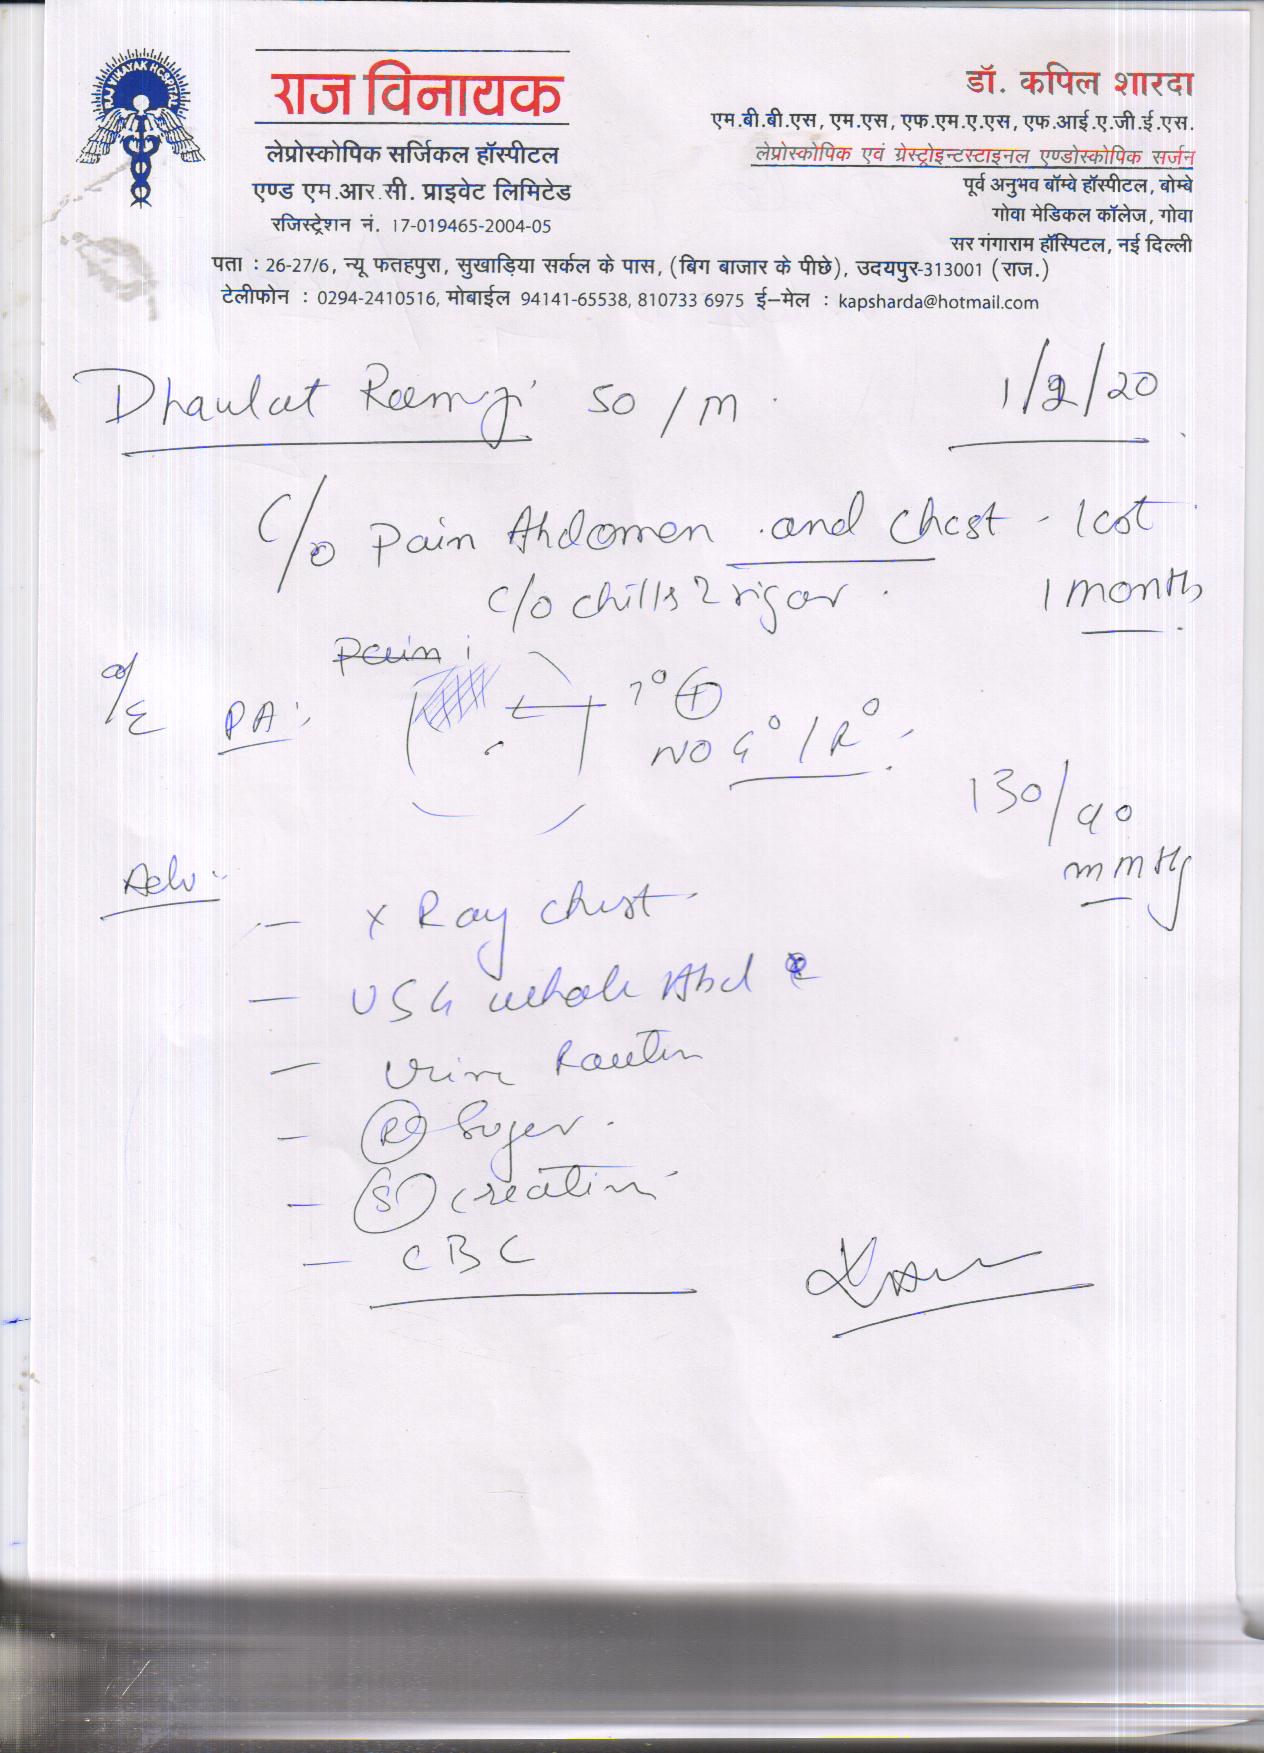 RAJ VINAYAK HOSPITAL
राज विनायक
लेप्रोस्कोपिक सर्जिकल हॉस्पीटल
एण्ड एम.आर.सी. प्राइवेट लिमिटेड
रजिस्ट्रेशन नं. 17-019465-2004-05
डॉ. कपिल शारदा
एम.बी.बी.एस, एम.एस, एफ.एम.ए.एस, एफ.आई.ए.जी.ई.एस.
लेप्रोस्कोपिक एवं ग्रेस्ट्रोइन्टस्टाइनल एण्डोस्कोपिक सर्जन
पूर्व अनुभव बॉम्बे हॉस्पीटल, बोम्बे
गोवा मेडिकल कॉलेज, गोवा
सर गंगाराम हॉस्पिटल, नई दिल्ली
पता : 26-27/6, न्यू फतहपुरा, सुखाड़िया सर्कल के पास, (बिग बाजार के पीछे), उदयपुर-313001 (राज.)
टेलीफोन : 0294-2410516, मोबाईल 94141-65538, 810733 6975 ई-मेल : kapsharda@hotmail.com
Dhaulat Ramji 50/M 1/2/20
C/o Pain Abdomen and Chest -
C/o chills rigor. 1 month
Pain :
O/E PA :- T° (+)
NO G°/R°
130/90
mmHg
Adv :-
- X Ray chest
- USG whole Abd
- Urine Routin
- (R) Suger
- (S) creatin
- CBC